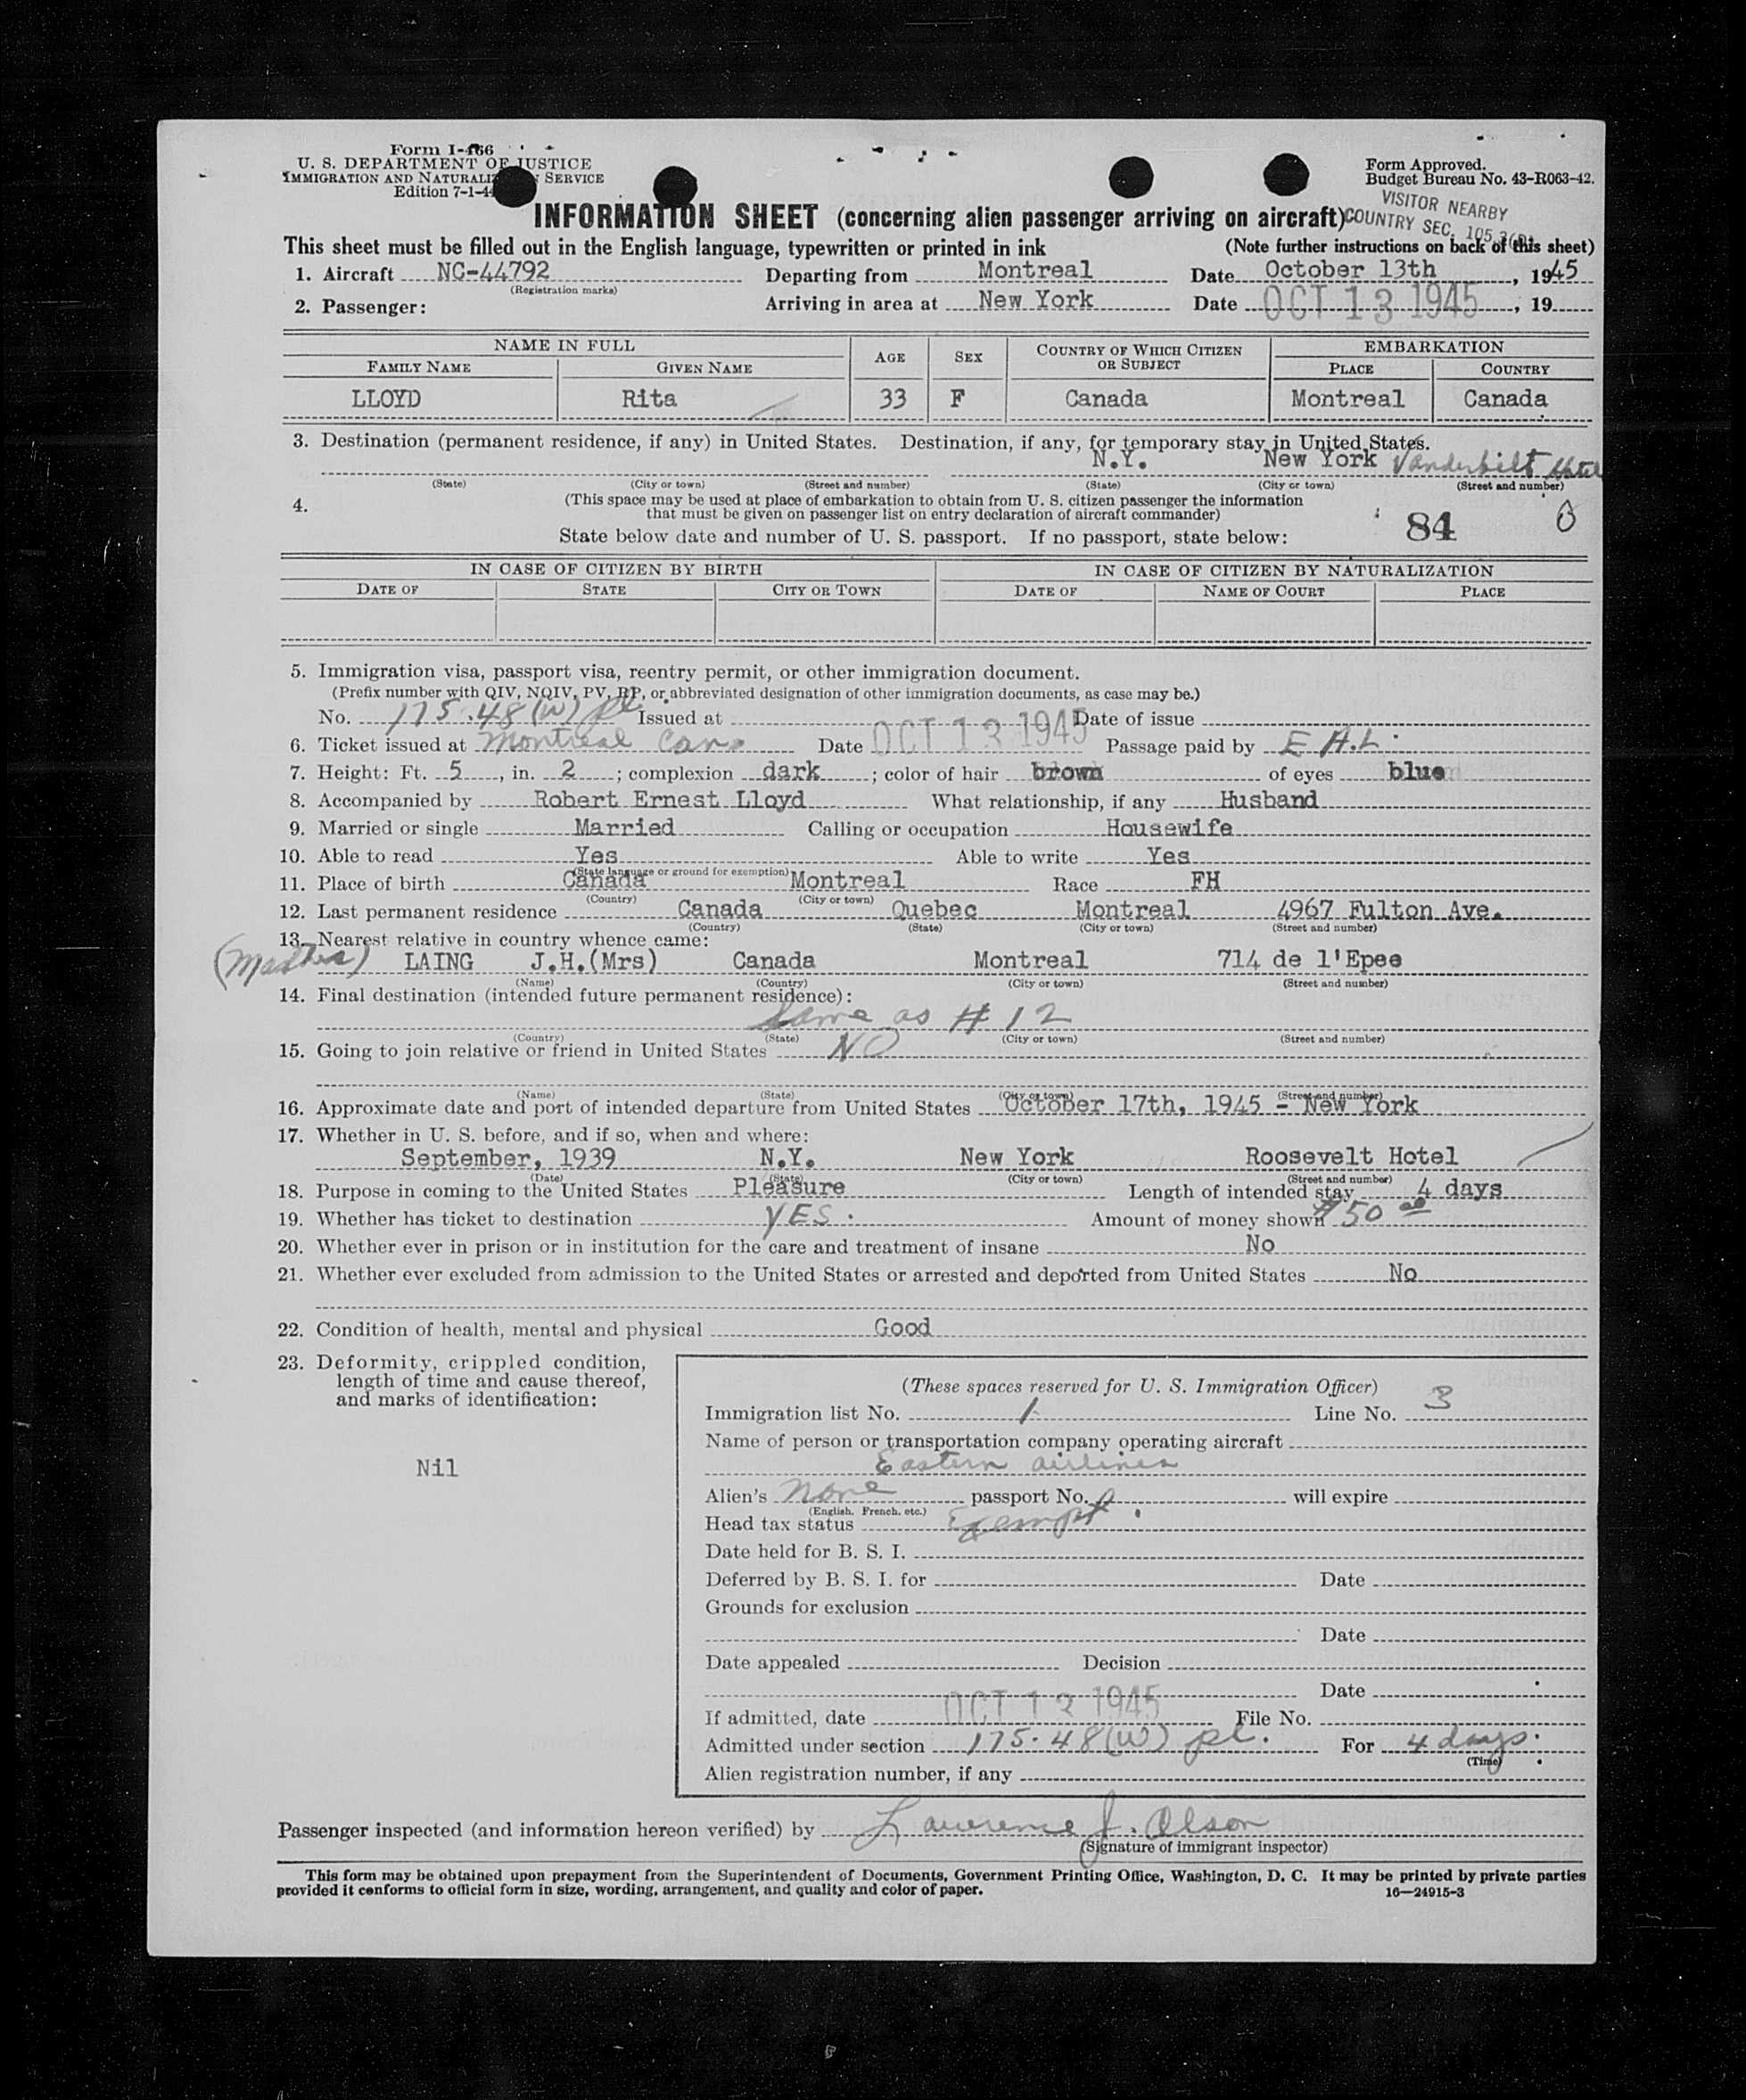 Form I-466
U. S. DEPARTMENT OF JUSTICE
IMMIGRATION AND NATURALIZATION SERVICE
Edition 7-1-44
Form Approved.
Budget Bureau No. 43-R063-42.
VISITOR NEARBY
COUNTRY SEC. 105.3
INFORMATION SHEET (concerning alien passenger arriving on aircraft)
This sheet must be filled out in the English language, typewritten or printed in ink (Note further instructions on back of this sheet)
1. Aircraft NC-44792 Departing from Montreal Date October 13th, 1945
(Registration marks)
2. Passenger: Arriving in area at New York Date OCT 13 1945, 19
NAME IN FULL AGE SEX COUNTRY OF WHICH CITIZEN OR SUBJECT EMBARKATION
FAMILY NAME GIVEN NAME PLACE COUNTRY
LLOYD Rita 33 F Canada Montreal Canada
3. Destination (permanent residence, if any) in United States. Destination, if any, for temporary stay in United States.
N.Y. New York Vanderbilt Hotel
(State) (City or town) (Street and number) (State) (City or town) (Street and number)
4. (This space may be used at place of embarkation to obtain from U. S. citizen passenger the information
that must be given on passenger list on entry declaration of aircraft commander)
84
State below date and number of U. S. passport. If no passport, state below:
IN CASE OF CITIZEN BY BIRTH IN CASE OF CITIZEN BY NATURALIZATION
DATE OF STATE CITY OR TOWN DATE OF NAME OF COURT PLACE
5. Immigration visa, passport visa, reentry permit, or other immigration document.
(Prefix number with QIV, NQIV, PV, RP, or abbreviated designation of other immigration documents, as case may be.)
No. 175.48(W) pl. Issued at Date of issue
6. Ticket issued at Montreal Can. Date OCT 13 1945 Passage paid by E A.L.
7. Height: Ft. 5, in. 2; complexion dark; color of hair brown of eyes blue
8. Accompanied by Robert Ernest Lloyd What relationship, if any Husband
9. Married or single Married Calling or occupation Housewife
10. Able to read Yes Able to write Yes
(State language or ground for exemption)
11. Place of birth Canada Montreal Race FH
(Country) (City or town)
12. Last permanent residence Canada Quebec Montreal 4967 Fulton Ave.
(Country) (State) (City or town) (Street and number)
13. Nearest relative in country whence came:
(Mother) LAING J.H.(Mrs) Canada Montreal 714 de l'Epee
(Name) (Country) (City or town) (Street and number)
14. Final destination (intended future permanent residence):
Same as # 12
(Country) (State) (City or town) (Street and number)
15. Going to join relative or friend in United States NO
(Name) (State) (City or town) (Street and number)
16. Approximate date and port of intended departure from United States October 17th, 1945 - New York
17. Whether in U. S. before, and if so, when and where:
September, 1939 N.Y. New York Roosevelt Hotel
(Date) (State) (City or town) (Street and number)
18. Purpose in coming to the United States Pleasure Length of intended stay 4 days
19. Whether has ticket to destination YES. Amount of money shown $50 00
20. Whether ever in prison or in institution for the care and treatment of insane No
21. Whether ever excluded from admission to the United States or arrested and deported from United States No
22. Condition of health, mental and physical Good
23. Deformity, crippled condition,
length of time and cause thereof,
and marks of identification:
Nil
(These spaces reserved for U. S. Immigration Officer)
Immigration list No. 1 Line No. 3
Name of person or transportation company operating aircraft
Eastern airlines
Alien's none passport No. will expire
(English, French, etc.)
Head tax status Exempt.
Date held for B. S. I.
Deferred by B. S. I. for Date
Grounds for exclusion
Date
Date appealed Decision
Date
If admitted, date OCT 13 1945 File No.
Admitted under section 175.48(W) pl. For 4 days.
(Time)
Alien registration number, if any
Passenger inspected (and information hereon verified) by Lawrence J. Olson
(Signature of immigrant inspector)
This form may be obtained upon prepayment from the Superintendent of Documents, Government Printing Office, Washington, D. C. It may be printed by private parties
provided it conforms to official form in size, wording, arrangement, and quality and color of paper. 16—24915-3